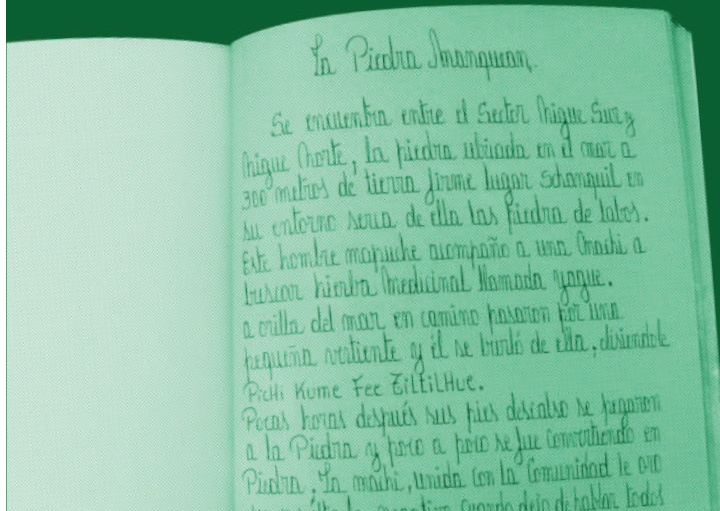 La Piedra Manquean.
Se encuentra entre el Sector Mique Sur y
Mique Norte, la piedra ubicada en el mar a
300 metros de tierra firme lugar Schanquil en
su entorno seria de ella las piedra de lobos.
Este hombre mapuche acompaño a una Machi a
buscar hierba Medicinal llamada yaque.
a orilla del mar en camino pasaron por una
pequeña vertiente y él se burló de ella, disiendole
Pichi Kume Fee
Pocas horas después sus pies descalso se pegaron
a la Piedra y poco a poco se fue convirtiendo en
Piedra, La machi, unida con la Comunidad le oro
cuando dejo de hablar todos